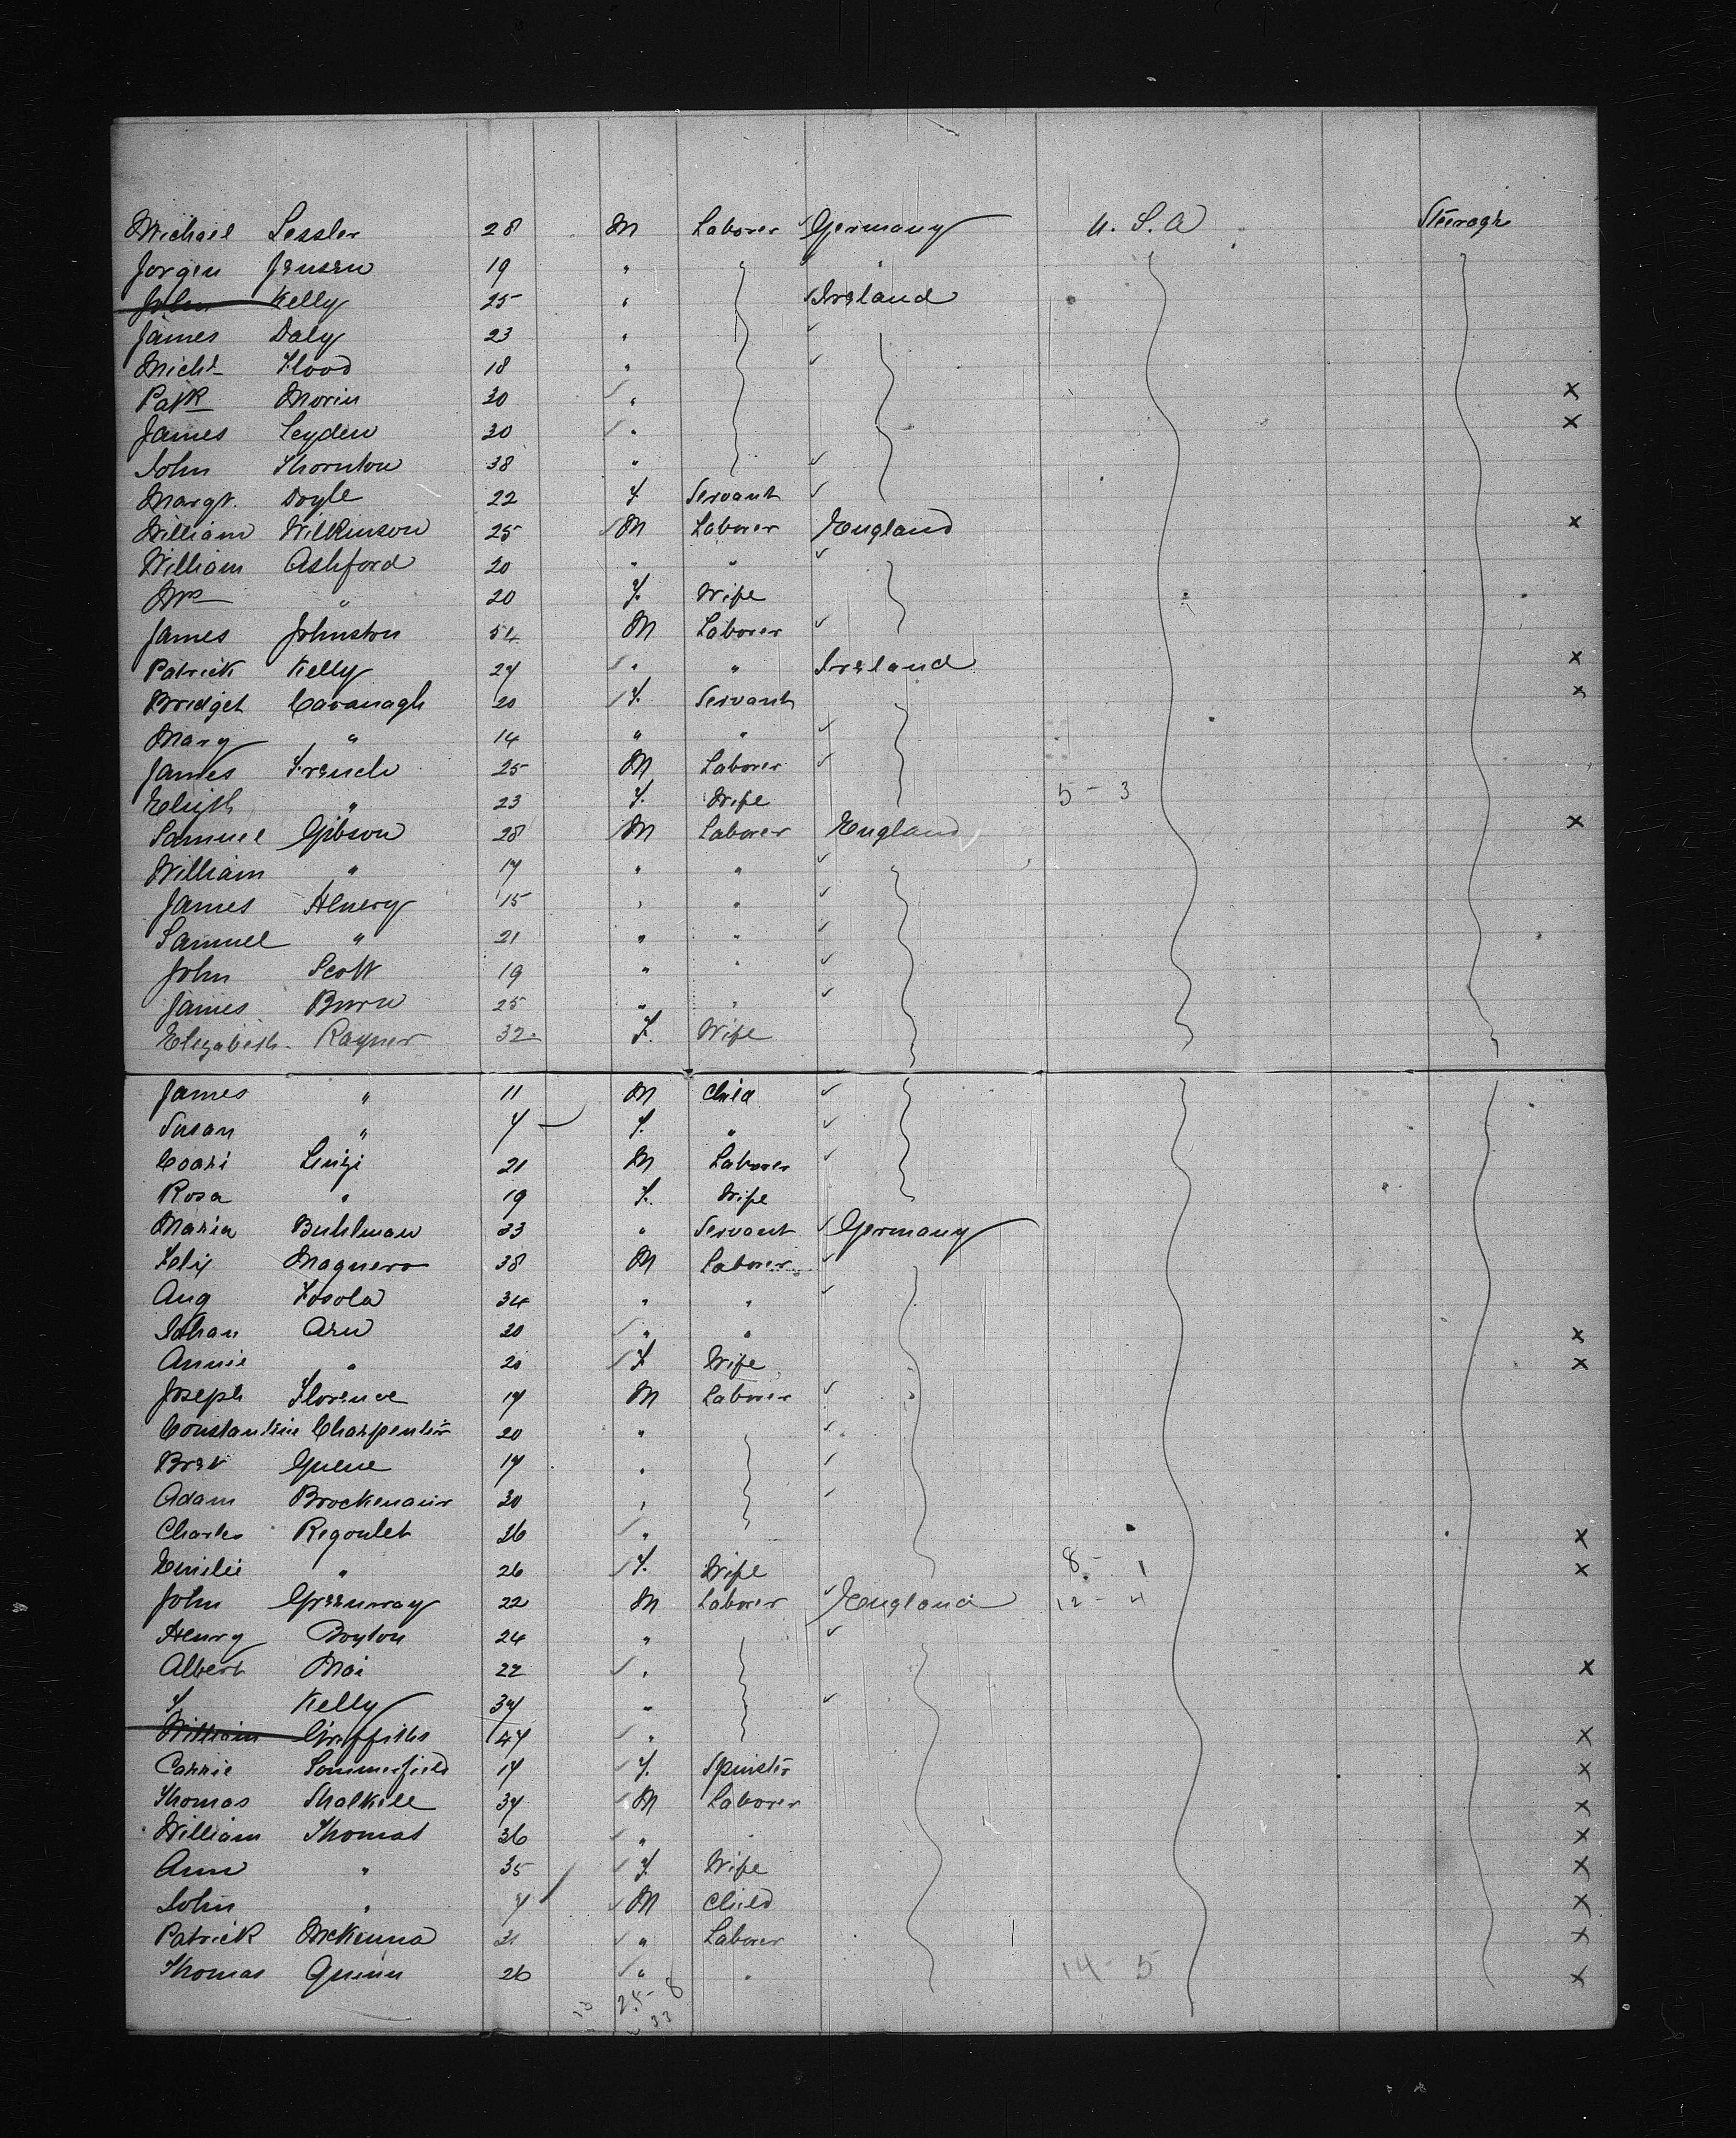 Michael Lessler 28 M Laborer Germany U.S.A Steerage
Jorgen Jensen 19 "
John Kelly 25 " Ireland
James Daly 23 "
Michl Flood 18 "
Patk Morin 30 " x
James Leyden 30 " x
John Thornton 38 "
Margt. Doyle 22 F Servant
William Wilkinson 25 M Laborer England x
William Ashford 20 " "
Mrs " 20 F. Wife
James Johnston 54 M Laborer
Patrick Kelly 27 " " Ireland x
Bridget Cavanagh 20 F. Servant x
Mary " 14 " "
James French 25 M Laborer
" 23 F. Wife 5 - 3
Samuel Gibson 28 M Laborer England x
William " 17 " "
James Henery 15 " "
Samuel " 21 " "
John Scott 19 " "
James Burn 25 " "
Elizabeth Rayner 32 F. Wife
James " 11 M Child
Susan " 7 F. "
Luigi 21 M Laborer
Rosa " 19 F. Wife
Maria Buhlman 33 " Servant Germany
Felix Maquero 38 M Laborer
Aug Fosola 34 " "
Johan Aru 30 " " x
Annie " 20 F Wife x
Joseph Florence 17 M Laborer
Constantine Charpentier 20 "
Guene 17 "
Adam 30 "
Charles Regoulet 26 " x
Emilie " 26 F. Wife 8 - 1 x
John Greenway 22 M Laborer England 12 - 4
Henry Boyton 24 "
Albert Moi 22 " x
Kelly 37 "
William Griffiths 47 " x
Carrie Sommerfield 17 F. Spinster x
Thomas Thalkill 37 M Laborer x
William Thomas 36 " x
Ann " 35 F. Wife x
John " 7 M Child x
Patrick McKenna " Laborer x
Thomas Quinn 26 " " 14 - 5 x
25 - 8
33